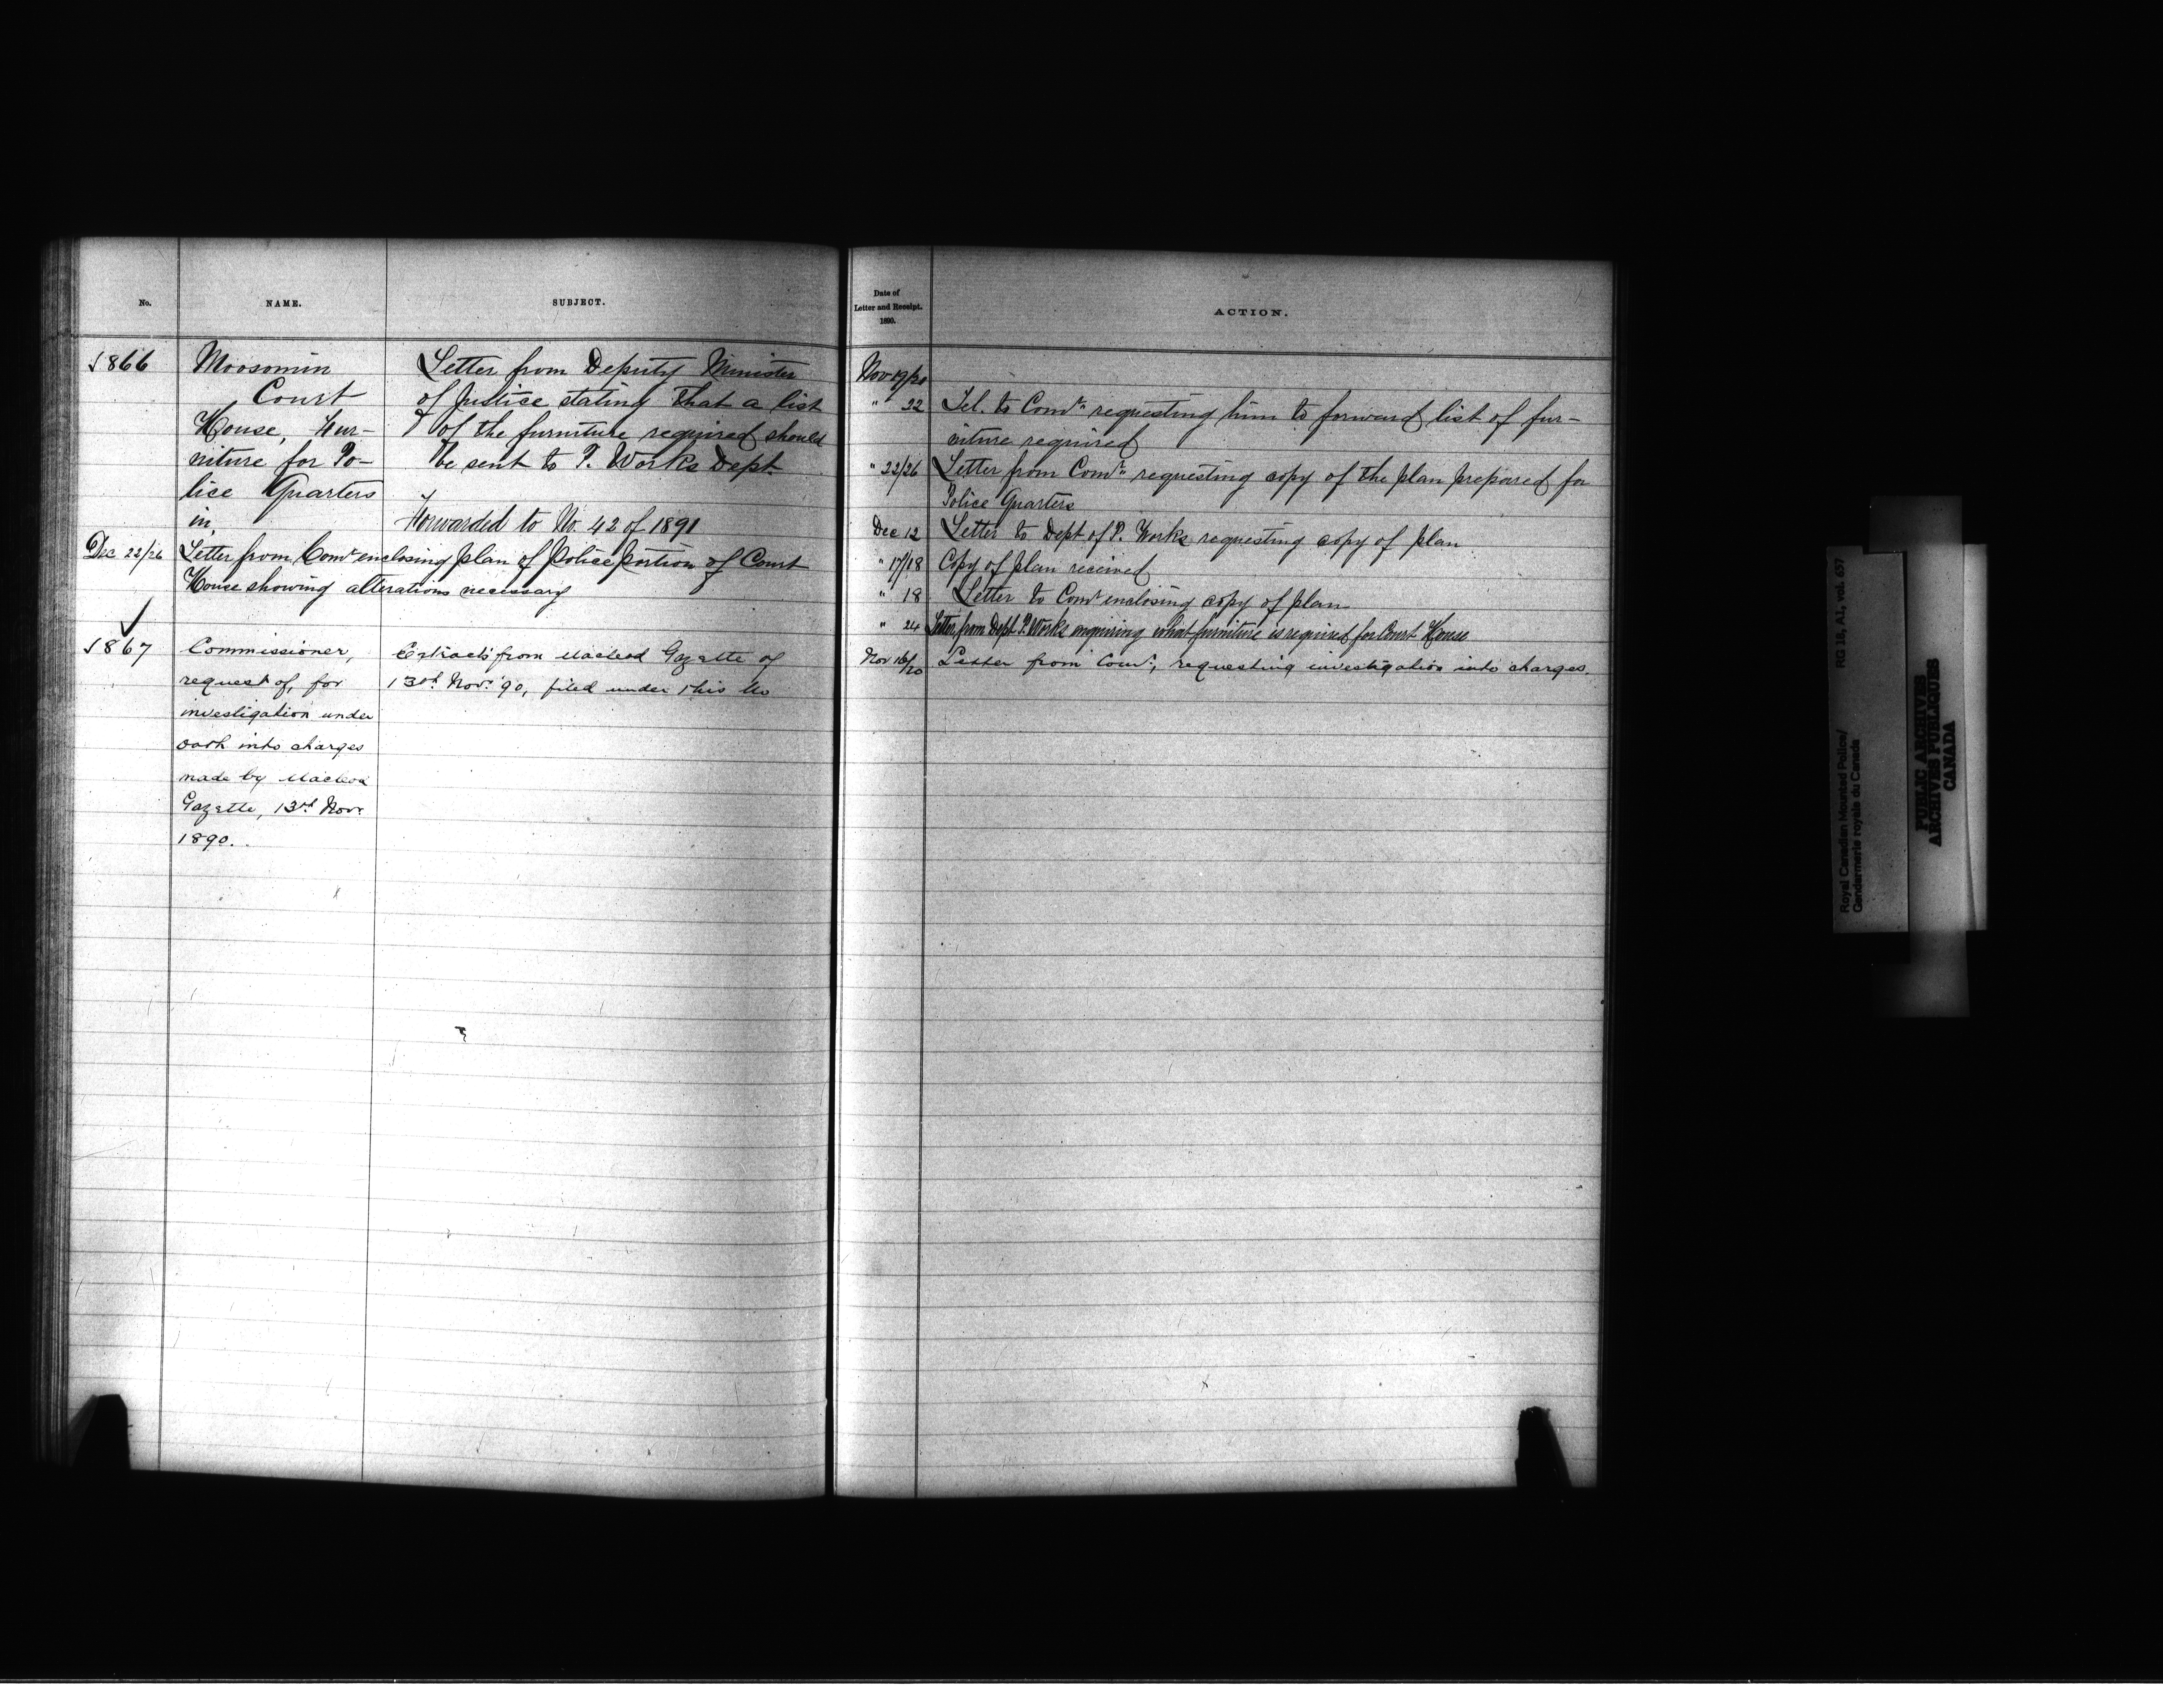 No.
NAME.
SUBJECT.
1866
Moosomin
Court
House, Fur-
niture for Po-
lice Quarters
in
Letter from Deputy Minister
of Justice stating that a list
of the furniture required should
be sent to P. Works Dept
Forwarded to No. 42 of 1891
Dec 22/26 Letter from Comr enclosing plan of Police portion of Court
House showing alterations necessary
1867
Commissioner,
request of, for
investigation under
oath into charges
made by Macleod
Gazette, 13th Novr
1890.
Extracts from Macleod Gazette of
13th Novr 90, filed under this No
Date of
Letter and Receipt.
1890.
ACTION.
Nov 19/20
" 22 Tel. to Comr requesting him to forward list of fur-
niture required
" 22/26 Letter from Comr requesting copy of the plan prepared for
Police Quarters
Dec 12 Letter to Dept of P. Works requesting copy of plan
" 17/18 Copy of plan received
" 18 Letter to Comr enclosing copy of plan
" 24 Letter from Dept P. Works enquiring what furniture is required for Court House
Nov 16/20 Letter from Comr, requesting investigation into charges.
Royal Canadian Mounted Police/ RG 18, A1, vol. 637
Gendarmerie royale du Canada
PUBLIC ARCHIVES
ARCHIVES PUBLIQUES
CANADA